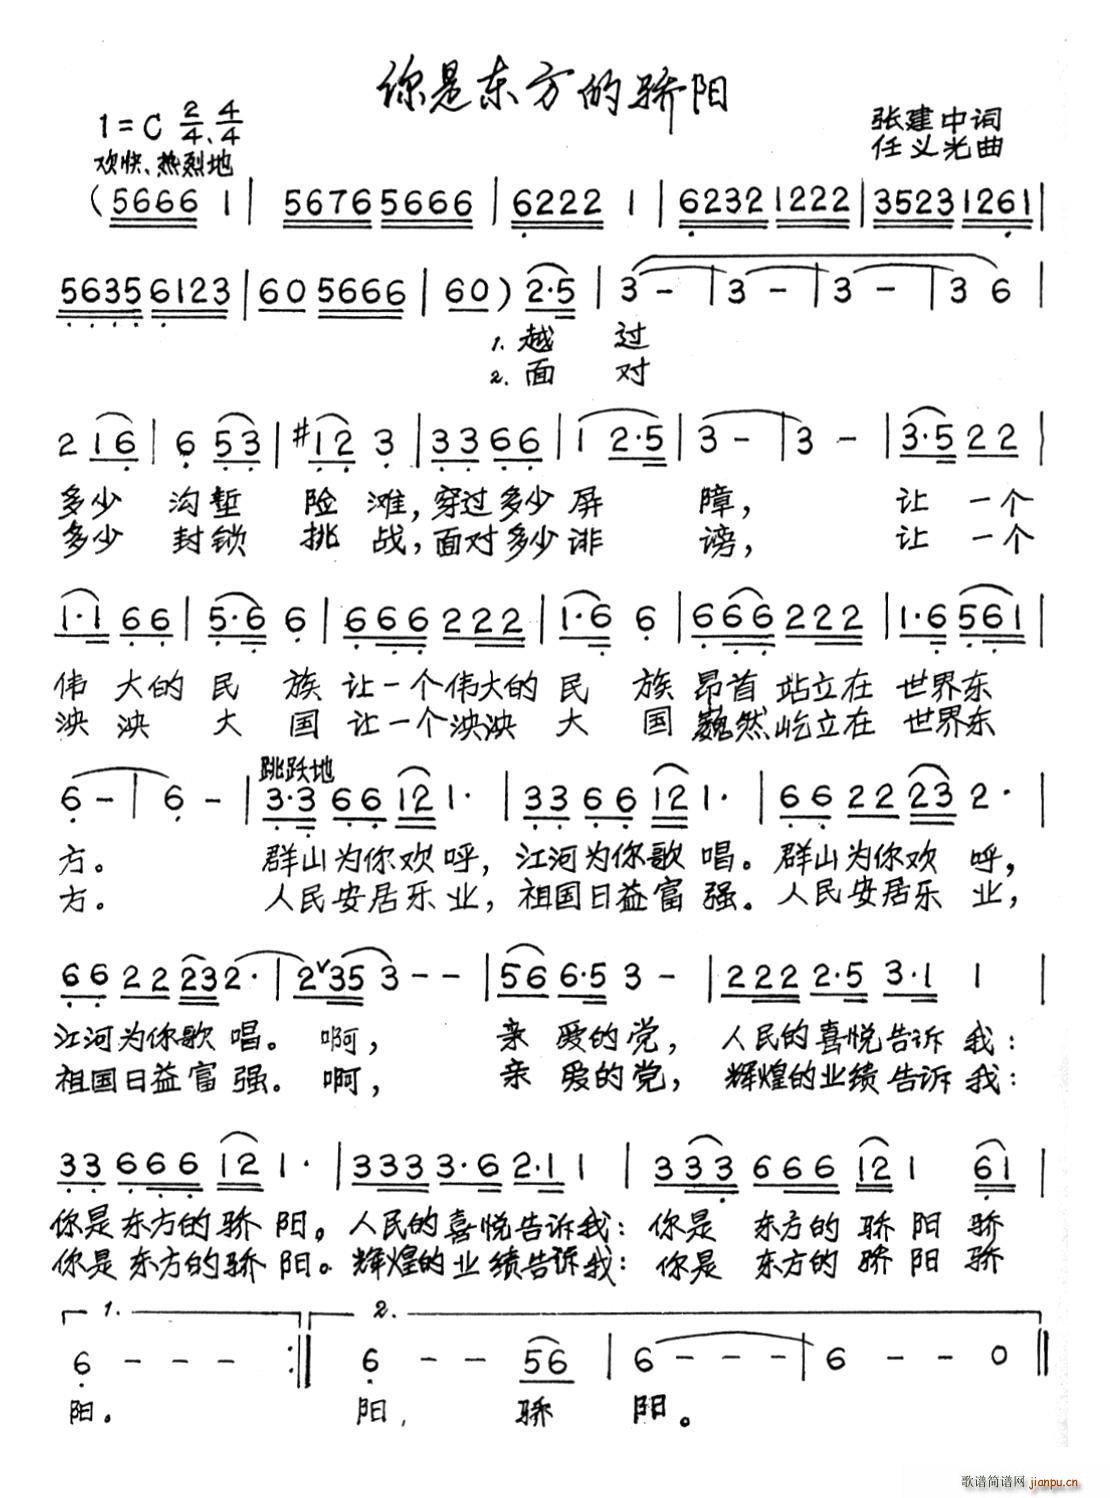 你是东方的骄阳
1=C 2/4、4/4
张建中词
任义光曲
欢快、热烈地
(5666 1 | 5676 5666 | 6222 1 | 6232 1222 | 3523 1261 |
5635 6123 | 60 5666 | 60) 2·5 | 3 - | 3 - | 3 - | 3 6 |
1. 越 过
2. 面 对
2 16 | 6 53 | #12 3 | 33 66 | 1 2·5 | 3 - | 3 - | 3·5 22 |
多少 沟堑 险 滩，穿过多少屏 障， 让 一个
多少 封锁 挑 战，面对多少诽 谤， 让 一个
1·1 66 | 5·6 6 | 666 222 | 1·6 6 | 666 222 | 1·6 561 |
伟 大的 民 族 让一个伟大的 民 族 昂首 站立在 世界东
泱 泱 大 国 让一个泱泱 大 国 巍然屹立在 世界东
跳跃地
6 - | 6 - | 3·3 66 12 1· | 33 66 12 1· | 66 22 23 2· |
方。 群山为你欢 呼，江河为你歌 唱。群山为你欢 呼，
方。 人民安居乐 业，祖国日益富 强。人民安居乐 业，
66 22 23 2· | 2∨35 3 - - | 56 6·5 3 - | 222 2·5 3·1 1 |
江河为你歌 唱。 啊， 亲 爱的党， 人民的喜悦告诉 我：
祖国日益富 强。 啊， 亲 爱的党， 辉煌的业绩告诉 我：
33 666 12 1· | 333 3·6 2·1 1 | 333 666 12 1 61 |
你是 东方的骄 阳。人民的喜悦告诉我：你是 东方的 骄 阳 骄
你是 东方的骄 阳。辉煌的业绩告诉我：你是 东方的 骄 阳 骄
1. 2.
6 - - - :| 6 - - 56 | 6 - - - | 6 - - 0 ‖
阳。 阳， 骄 阳。
歌谱简谱网 jianpu.cn